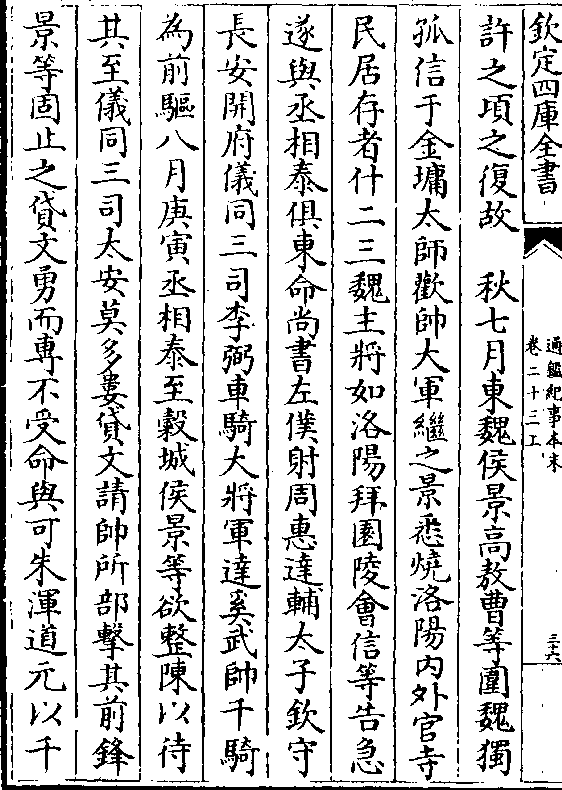 欽定四庫全書
通鑑紀事本末
卷二十三上
三十六
許之頃之復故　秋七月東魏侯景高敖曹等圍魏獨
孤信于金墉太師歡帥大軍繼之景悉燒洛陽內外官寺
民居存者什二三魏主將如洛陽拜園陵會信等告急
遂與丞相泰俱東命尚書左僕射周惠達輔太子欽守
長安開府儀同三司李弼車騎大將軍達奚武帥千騎
為前驅八月庚寅丞相泰至穀城侯景等欲整陳以待
其至儀同三司太安莫多婁貸文請帥所部擊其前鋒
景等固止之貸文勇而專不受命與可朱渾道元以千